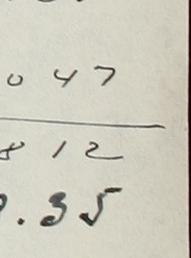 0 47
8 12
9.35